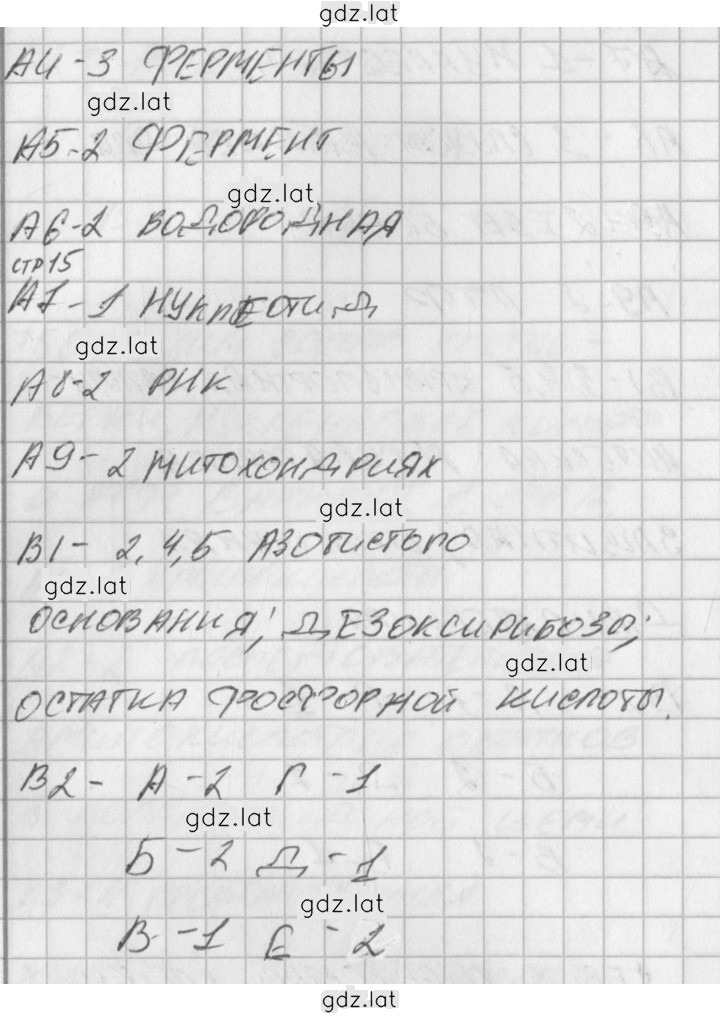 gdz.lat
А4-3 ФЕРМЕНТЫ
gdz.lat
А5-2 ФЕРМЕНТ
gdz.lat
А6-2 ВОДОРОДНАЯ
стр 15
А7-1 НУКЛЕОТИД
gdz.lat
А8-2 РНК
А9-2 МИТОХОНДРИЯХ
gdz.lat
В1- 2,4,5 АЗОТИСТОГО
gdz.lat
ОСНОВАНИЯ; ДЕЗОКСИРИБОЗЫ;
gdz.lat
ОСТАТКА ФОСФОРНОЙ КИСЛОТЫ.
В2 - А -2 Г -1
gdz.lat
Б -2 Д -1
gdz.lat
В -1 Е -2
gdz.lat